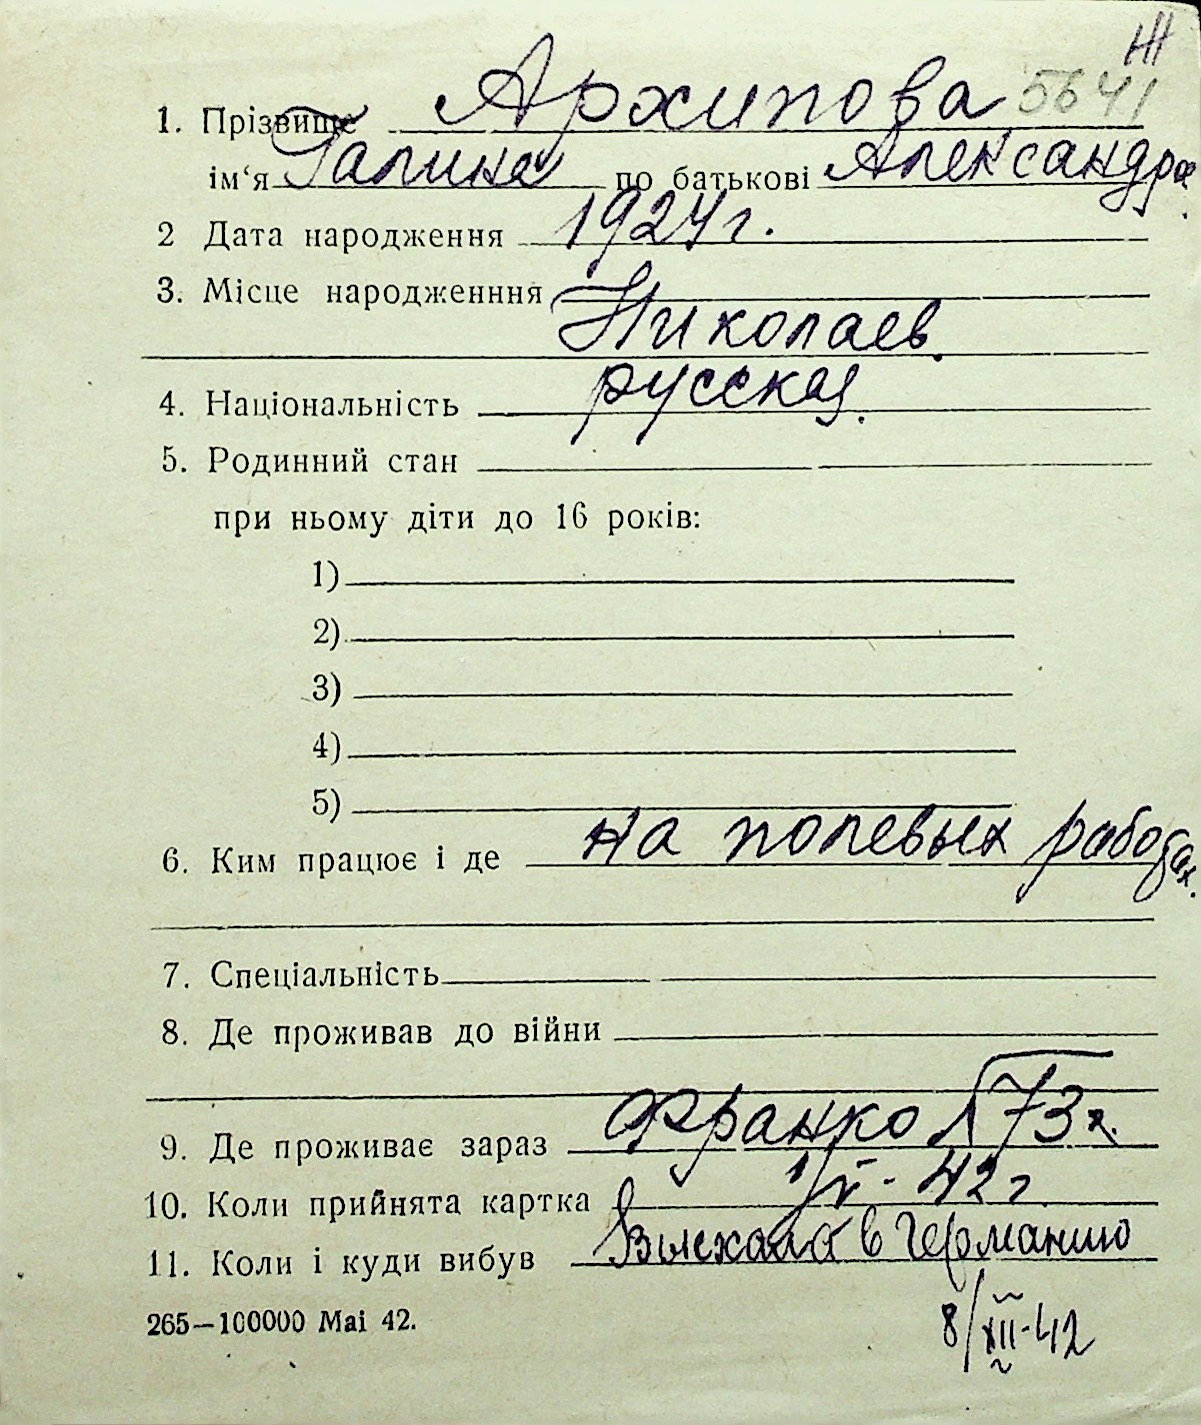 Ж
5641
1. Прізвище Архипова
ім‘я Галина по батькові Александр.
2 Дата народження 1924 г.
3. Місце народженння
Николаев.
4. Національність русская.
5. Родинний стан
при ньому діти до 16 років:
1)
2)
3)
4)
5)
6. Ким працює і де на полевых работах.
7. Спеціальність
8. Де проживав до війни
9. Де проживає зараз Франко 73
10. Коли прийнята картка 1/V - 42 г.
11. Коли і куди вибув Выехала в Германию
265—100000 Mai 42.
8/XII-42